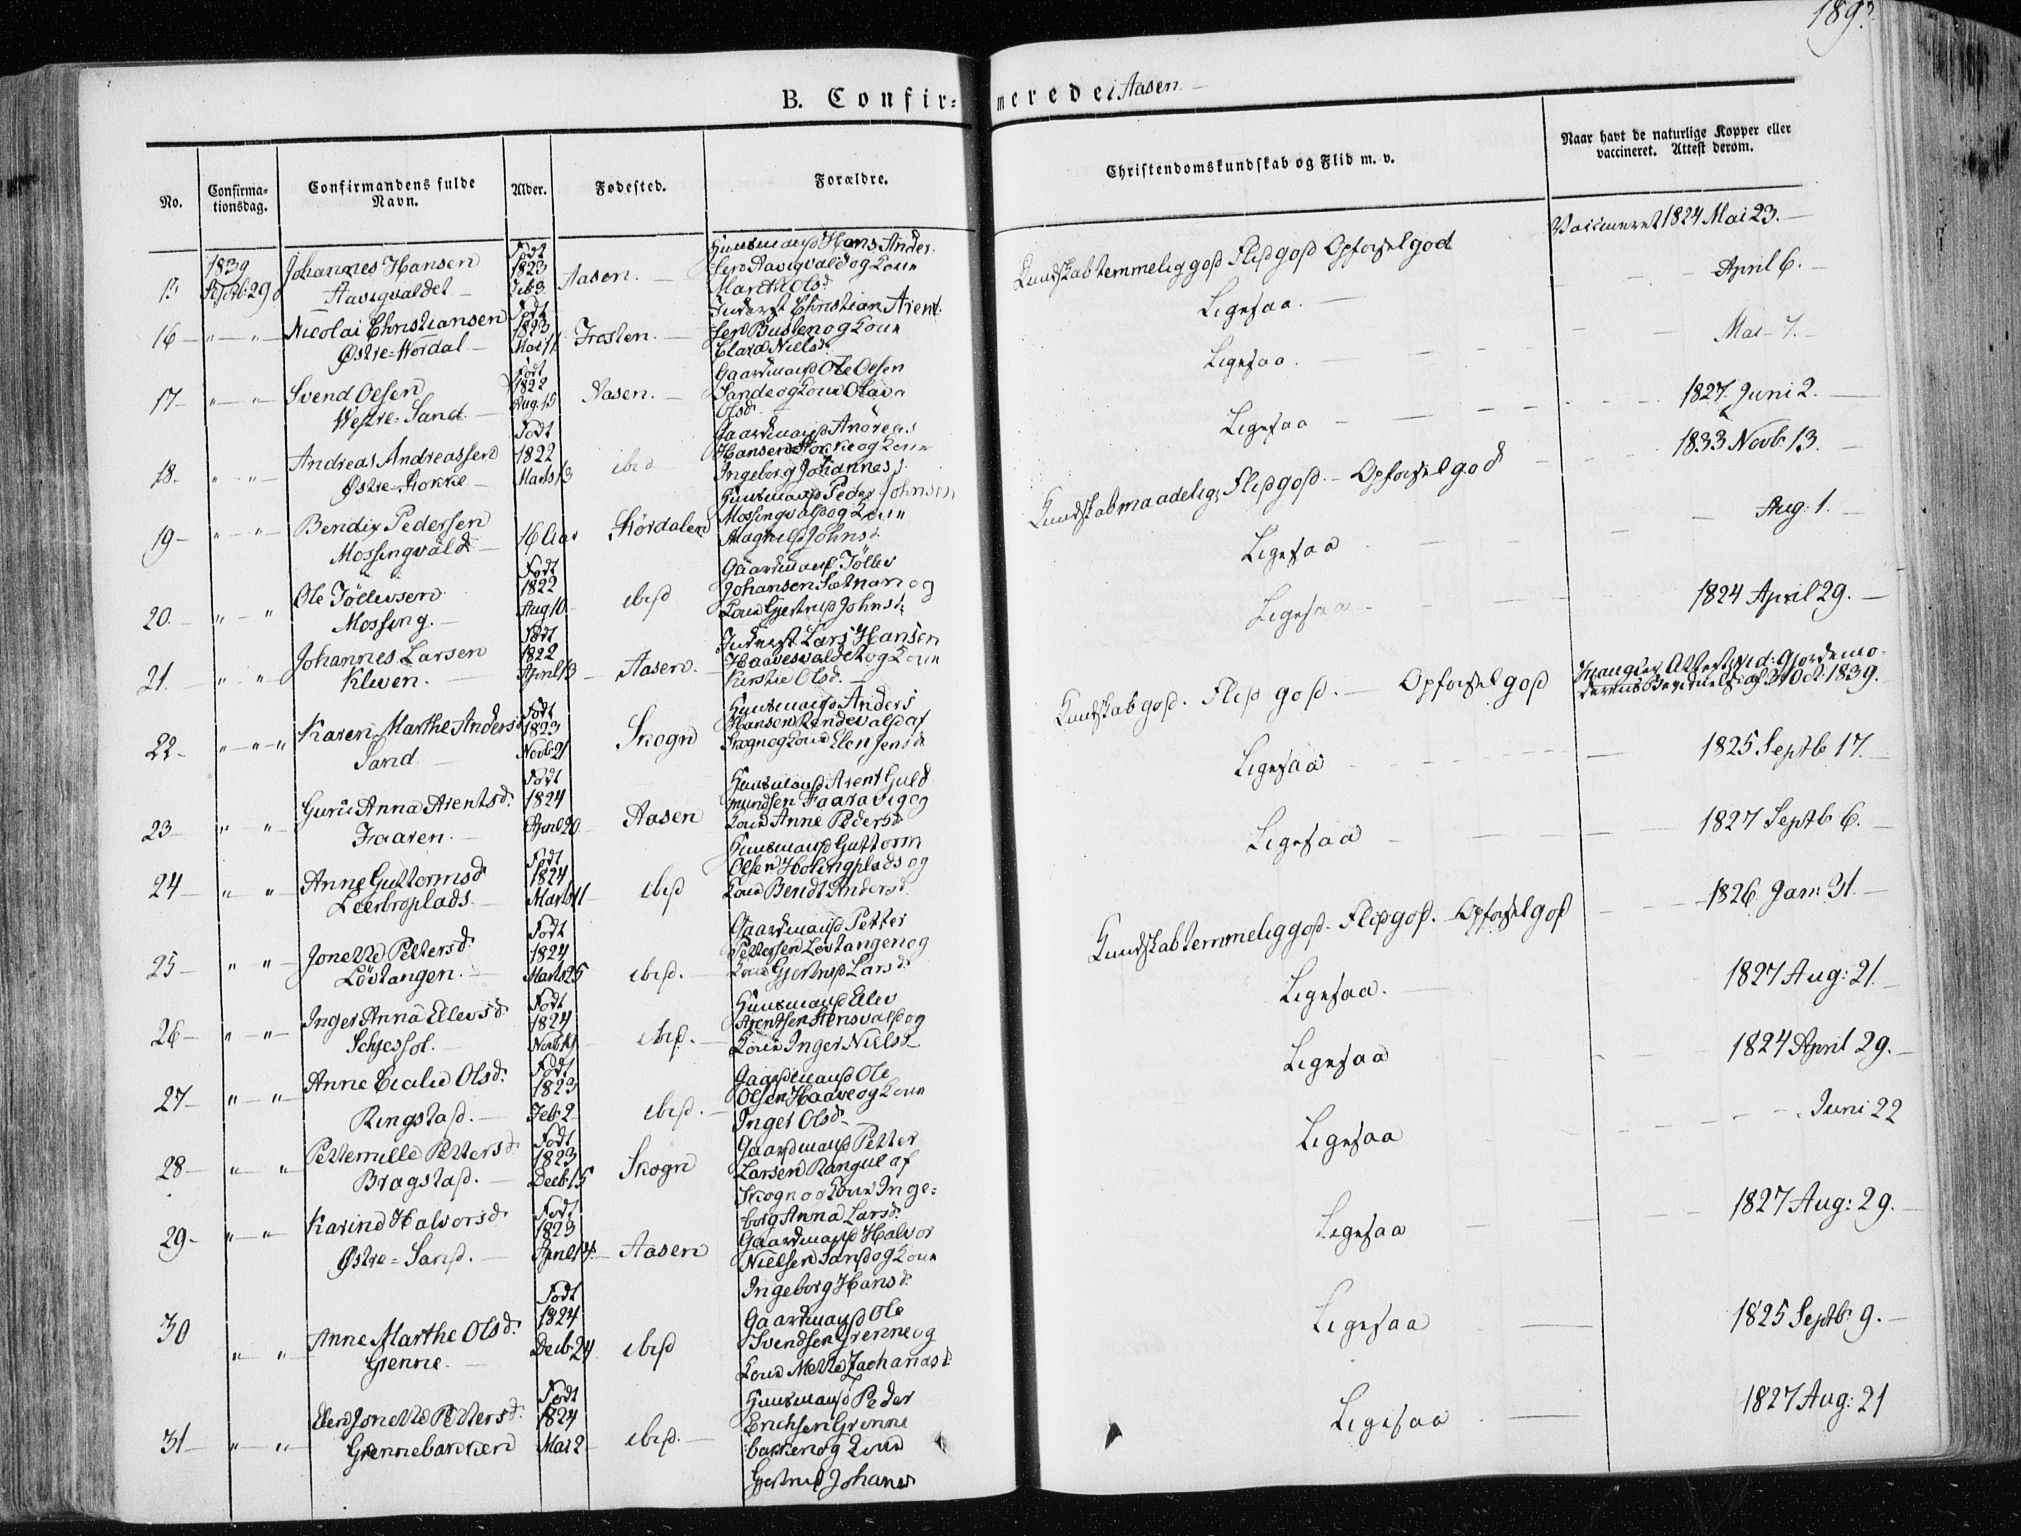 189
B. Confir= merede i Aasen.
No.
Confirma-
tionsdag.
Confirmandens fulde
Navn.
Alder.
Fødested.
Forældre.
Christendomskundskab og Flid m. v.
Naar havt de naturlige Kopper eller
vaccineret. Attest derom.
1839
Septb. 29
Johannes Hansen
Aavigvaldet
Født
1823
Feb 3
Aasen.
Huusmand Hans Ander-
sen Aavigvald og Kone
Marthe Olsd.
Kundskab temmelig god Flid god Opførsel god
Vaccineret 1824 Mai 23.
16 " "
Nicolai Christiansen
Østre-Hordal
Født
1823
Frosten.
Inderst Christian Arent-
sen og Kone
Clara Nielsd.
Ligesaa.
April 6.
17 " "
Svend Oesen
Westre-Sand
Født
1822
Aug. 15
Aasen.
Gaardmand Ole Oesen
Sande og Kone
Olsd.
Ligesaa.
Mai 7.
18. " "
Andreas Andreassen
Østre-Hokke
Født
1822
Marts 13
ibid
Gaardmand Andreas
Hansen Hokke og Kone
Ingeborg Johannesd.
Ligesaa
1827 Juni 2.
19 " "
Bendix Pedersen
Mossingvald
16 Aar
Stördalen
Huusmand Peder Johnsen
Mossingvald og Kone
Magnild Johnsd.
Kundskab maadelig, Flid god. Opførsel god
1833 Novb. 13.
20. " "
Ole Töllevsen
Mossing.
Født
1822
Aug 10
ibid
Gaardmand Töllev
Johansen og
Kone Gjertrud Johnsd.
Ligesaa
Aug: 1.
21. " "
Johannes Larsen
Kleven.
Født
1822
April 13
Aasen.
Inderst Lars Hansen
Haavesvaldet og Kone
Kirstie Olsd.
Ligesaa
1824 April 29.
22 " "
Karen Marthe Andersd
Sand
Født
1823
Novb 21
Skogn
Huusmand Anders
Hansen Rendesvald af
Skogn og Kone Elen Jensd
Kundskab god. Flid god. Opførsel god
Mangler Attest, vid: Gjordemo-
Octb. 1839.
23 " "
Guru Anna Arentsd.
Faaren.
Født
1824
April 20
Aasen
Huusmand Arent Guld
mundsen Faaravig og
Kone Anne Pedersd
Ligesaa
1825 Septb 17.
24 " "
Anne Guttormsd
Leerbroplads
Født
1824
Marts 11
ibid
Huusmand Guttorm
Olsen Holingplads og
Kone Bendt Andersd.
Ligesaa
1827 Septb 6.
25 " "
Jonette Pettersd.
Lövtangen.
Født
1824
Marts 25
ibid.
Gaardmand Petter
Pettersen Lövtangen og
Kone Gjertrud Larsd.
Kundskab temmelig god. Flid god. Opførsel god
1826 Jan: 31.
26 " "
Inger Anna Ellevsd.
Schjesfol.
Født
1824
Novb 19
ibid.
Huusmand Ellev
Arentsen og
Kone Inger Nielsd
Ligesaa.
1827 Aug: 21.
27 " "
Anne Cecilie Olsd.
Ringstad.
Født
1823
Feb 2
ibid.
Gaardmand Ole
Olsen Haave og Kone
Inger Olsd.
Ligesaa
1824 April 29.
28 " "
Petternille Pettersd.
Bragstad.
Født
1823
Decb 15
Skogn
Gaardmand Petter
Larsen Rangul af
Skogn og Kone Inge=
borg Anna Larsd.
Ligesaa
Juni 22
29. " "
Karine Halvorsd.
Østre=Sand.
Født
1823
April 14.
Aasen
Gaardmand Halvor
Nielsen Sand og Kone
Ingeborg Hansd.
Ligesaa
1827 Aug: 29.
30 " "
Anne Marthe Olsd.
Grenne.
Født
1824
Decb 24
ibid
Gaardmand Ole
Svendsen Grenne og
Kone Mette Zachariasd.
Ligesaa
1825 Septb. 9.
31 " "
Elen Jonette Pettersd.
Grennebakken
Født
1824
Mai 2
ibid.
Huusmand Peder
Erichsen Grenne
bakken og Kone
Gjertrud Johanes
Ligesaa
1827 Aug: 21